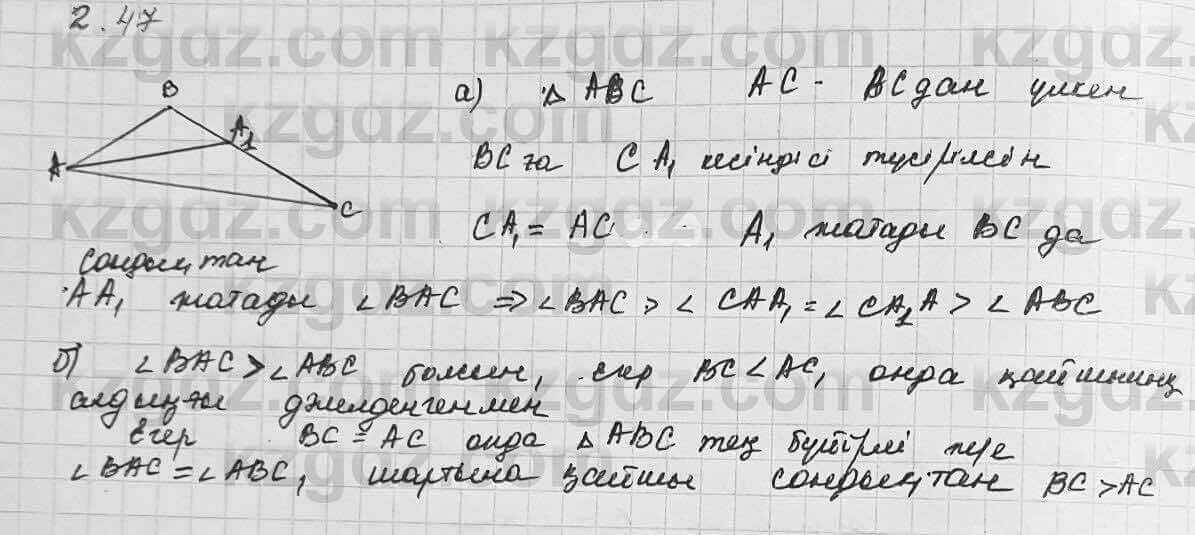 2.47
B
A
A₁
C
а) ∆ ABC AC - BCдан үлкен
BC ға CA₁ кесіндісі түсірілсін
CA₁ = AC A₁ жатады BC да
сондықтан
AA₁ жатады ∠BAC => ∠BAC > ∠CAA₁ = ∠CA₁A > ∠ABC
б) ∠BAC > ∠ABC болсын, егер BC < AC, онда қайшының
алдыңғы дәлелденгенмен
Егер BC = AC онда ∆ABC тең бүйірлі және
∠BAC = ∠ABC, шартына қайшы сондықтан BC > AC
kzgdz.com